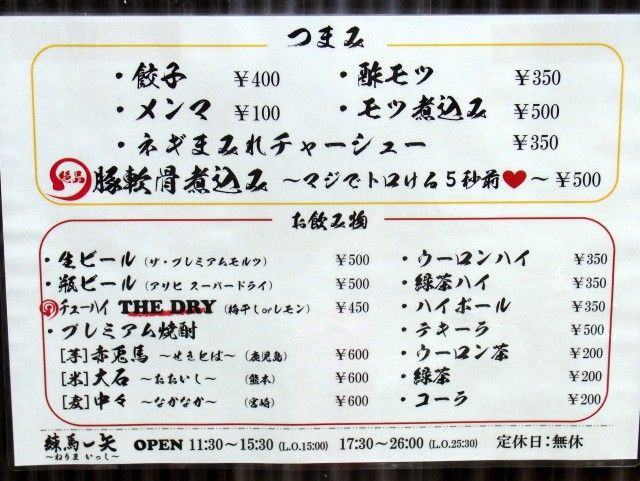 つまみ
・餃子 ¥400 ・酢モツ ¥350
・メンマ ¥100 ・モツ煮込み ¥500
・ネギまみれチャーシュー ¥350
絶品 豚軟骨煮込み ～マジでトロける5秒前♥～ ¥500
お飲み物
・生ビール (ザ・プレミアムモルツ) ¥500 ・ウーロンハイ ¥350
・瓶ビール (アサヒ スーパードライ) ¥500 ・緑茶ハイ ¥350
チューハイ THE DRY (梅干しorレモン) ¥450 ・ハイボール ¥350
・プレミアム焼酎 ・テキーラ ¥500
[芋]赤兎馬 ～せきとば～ (鹿児島) ¥600 ・ウーロン茶 ¥200
[米]大石 ～おおいし～ (熊本) ¥600 ・緑茶 ¥200
[麦]中々 ～なかなか～ (宮崎) ¥600 ・コーラ ¥200
練馬一矢 OPEN 11:30～15:30 (L.O.15:00) 17:30～26:00 (L.O.25:30) 定休日：無休
～ねりま いっし～